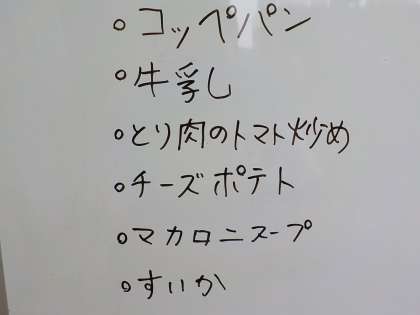 ○コッペパン
○牛乳
○とり肉のトマト炒め
○チーズポテト
○マカロニスープ
○すいか